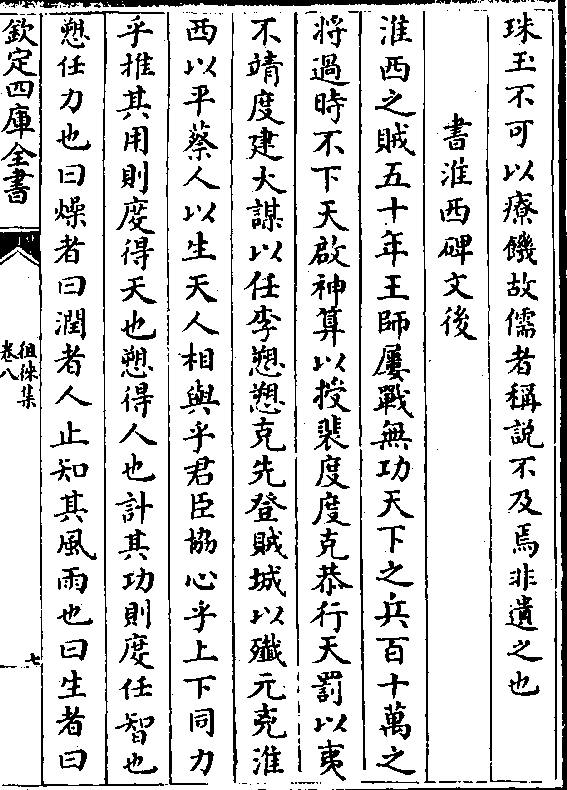 珠玉不可以療饑故儒者稱說不及焉非遺之也
書淮西碑文後
淮西之賊五十年王師屢戰無功天下之兵百十萬之
將過時不下天啟神算以授裴度度克恭行天罰以夷
不靖度建大謀以任李愬愬克先登賊城以殲元兇淮
西以平蔡人以生天人相與乎君臣協心乎上下同力
乎推其用則度得天也愬得人也計其功則度任智也
愬任力也曰燥者曰潤者人止知其風雨也曰生者曰
欽定四庫全書
徂徠集
卷八
七